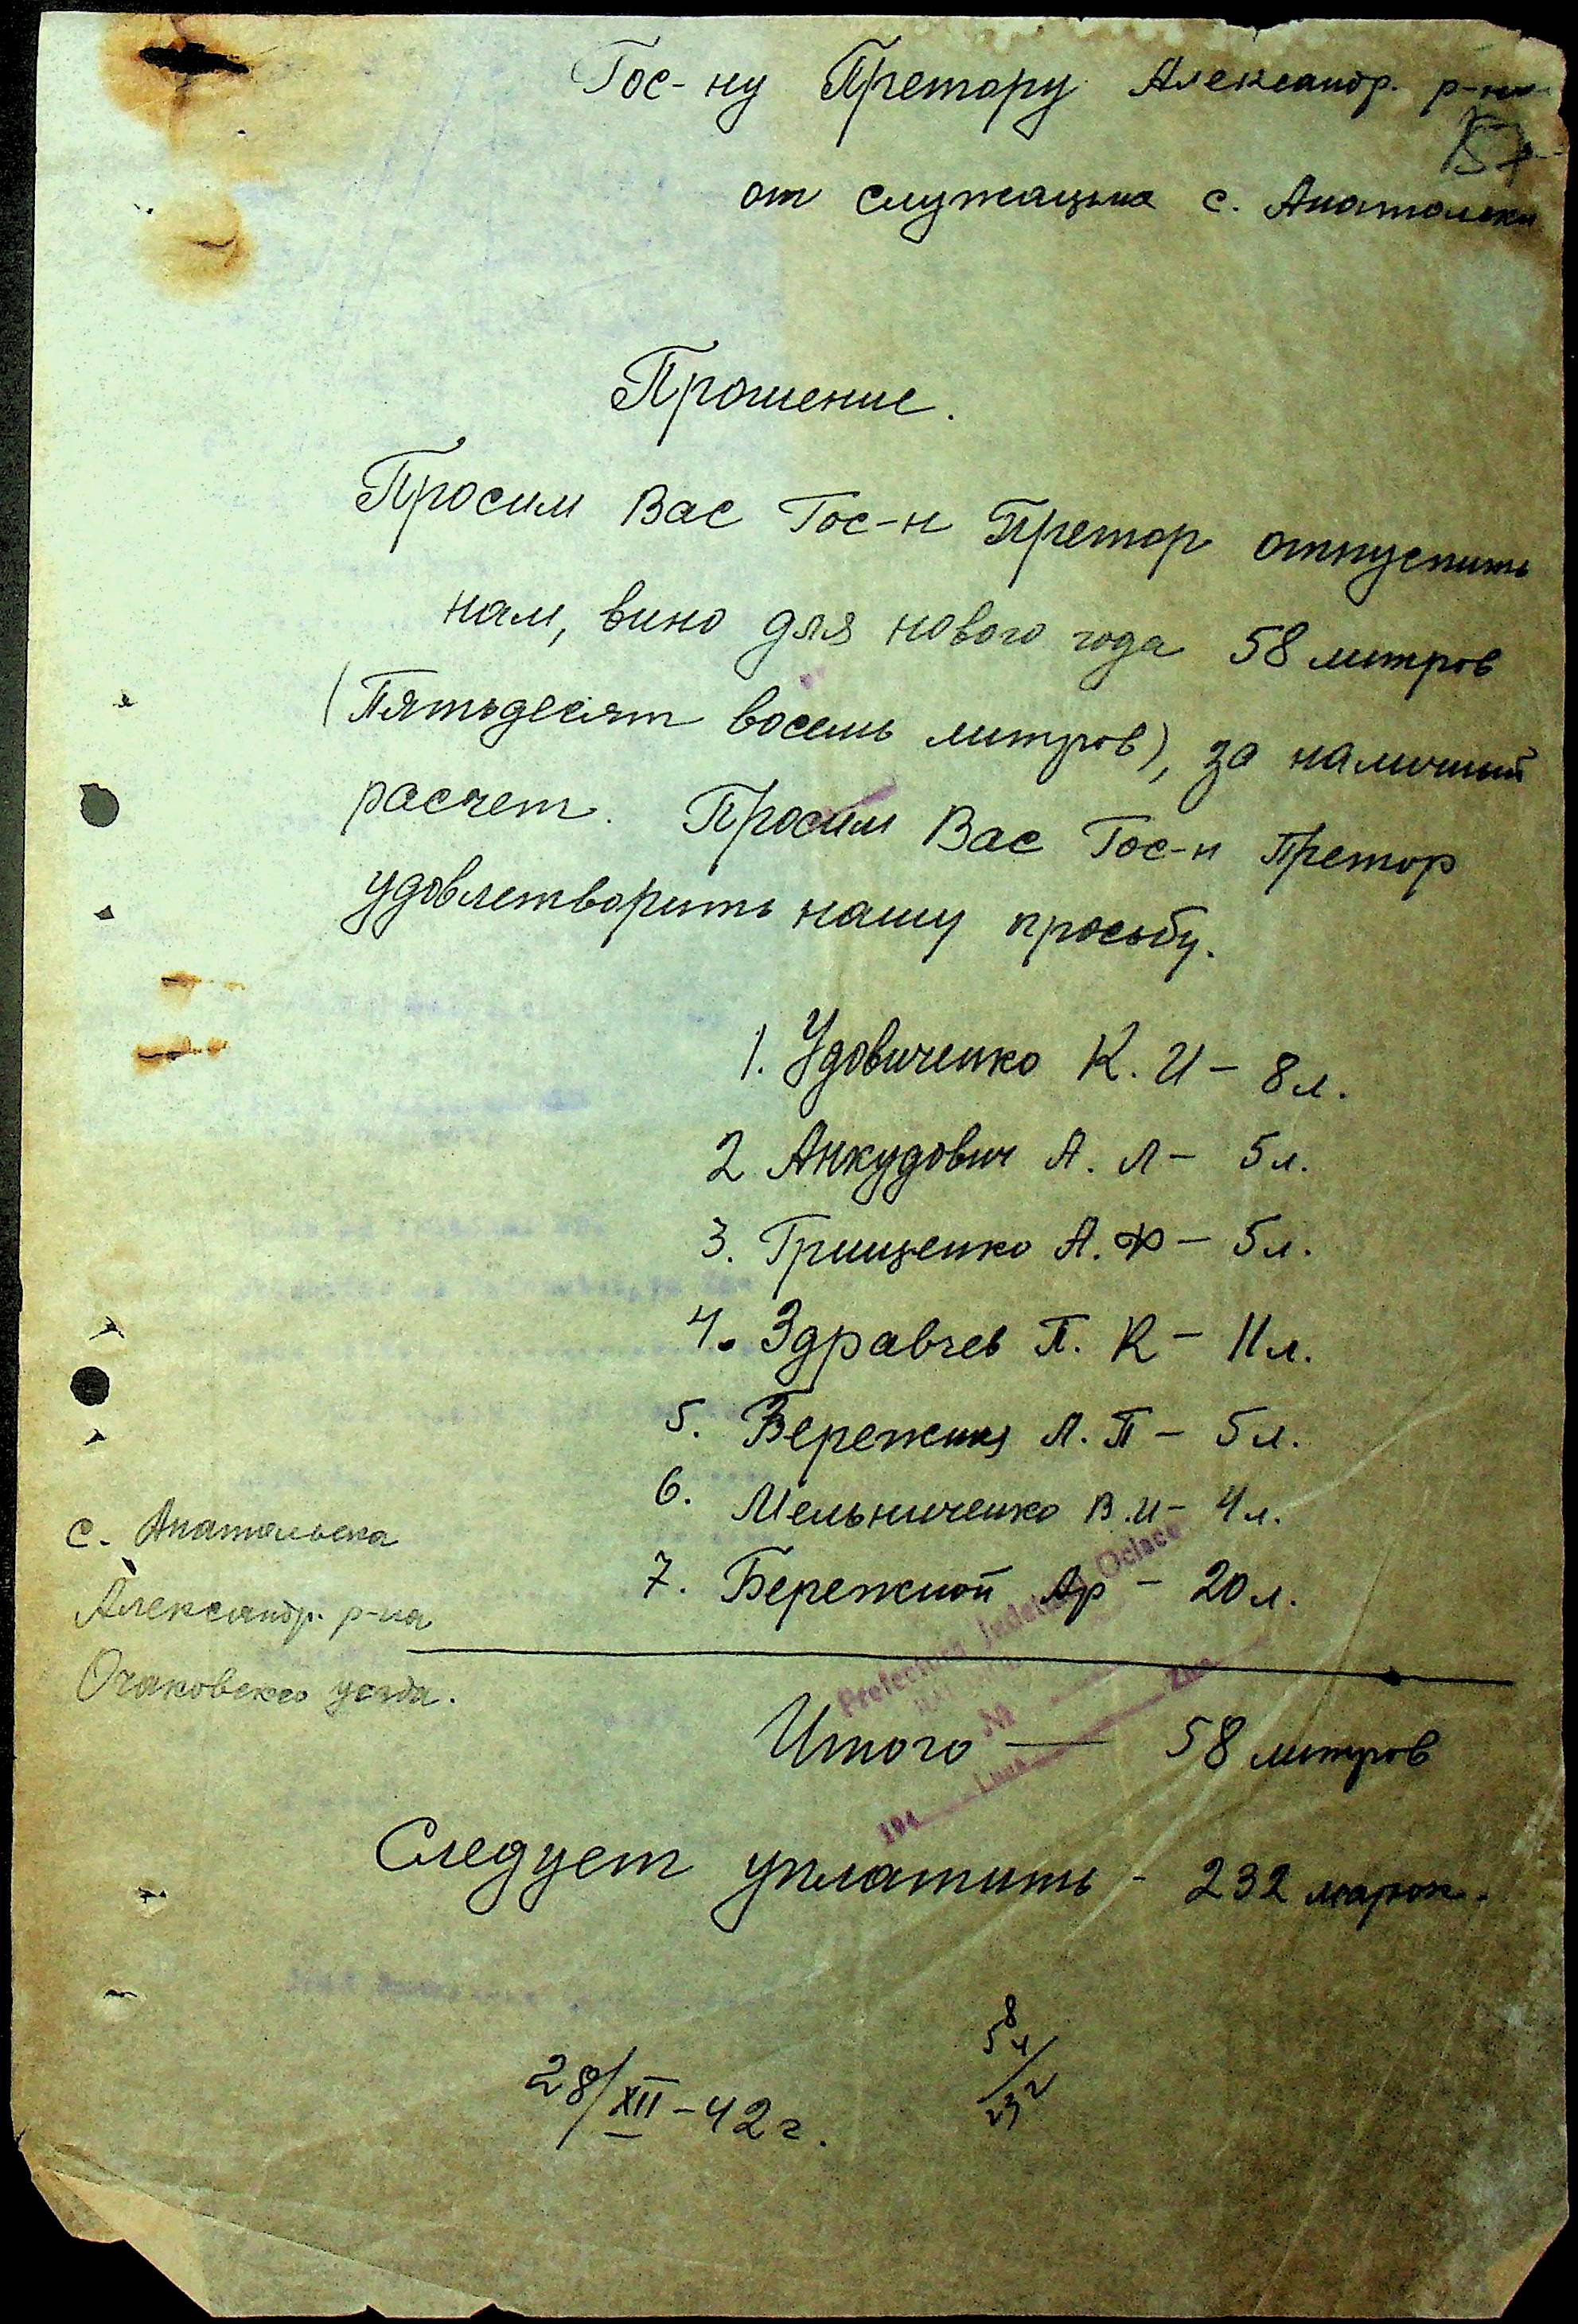 Гос-ну Претору Александр. р-на
от служащих с. Анатольевки
Прошение.
Просим Вас Гос-н Претор отпустить
нам, вино для нового года 58 литров
(Пятьдесят восемь литров), за наличный
расчет. Просим Вас Гос-н Претор
удовлетворить нашу просьбу.
1. Удовиченко К. И - 8 л.
2 Анкудович А. Л - 5 л.
3. Грищенко А. Ф - 5 л.
4. Здравчев П. К - 11 л.
5. Бережная Л. П - 5 л.
6. Мельниченко В. И - 4 л.
7. Бережной Ар - 20 л.
с. Анатольевка
Александр. р-на
Очаковского уезда.
Prefectura Judetului Ociacov
№
194 Luna Ziua
Итого — 58 литров
Следует уплатить - 232 марок.
28/XII - 42 г.
58
4
232